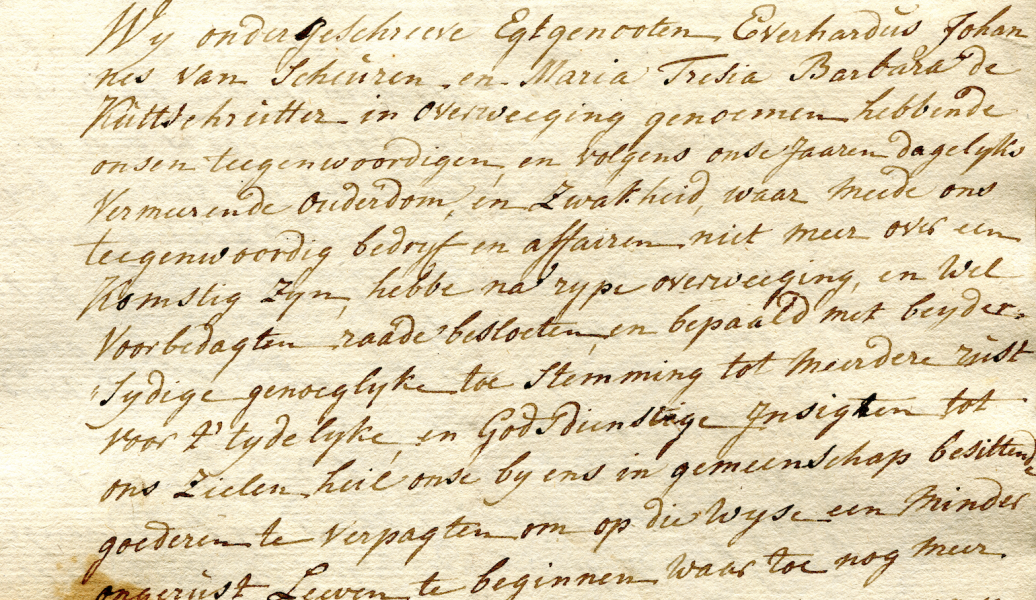 Wy ondergeschreeve Egtgenooten Everhardus Johan
nes van Scheuren en Maria Tresia Barbara de
Kuttschruitter in overweeging genoemen hebbende
onsen teegenwoordigen, en volgens onse Jaaren dagelyks
vermeerende Ouderdom, en Zwakheid, waar meede ons
teegenwoordig bedryf en affairen niet meer over een
Komstig Zyn, hebbe na rype overweeging, en wel
voorbedagten raade besloeten, en bepaald met beyder-
Sydige genoeglyke toe Stemming tot meerdere rust
voor t' tydelyke, en Godsdienstige Insigten tot
ons Zielen heil onse by ens in gemeenschap besittende
goederen te verpagten om op die Wyse een minder
ongerust Leeven te beginnen waar toe nog meer